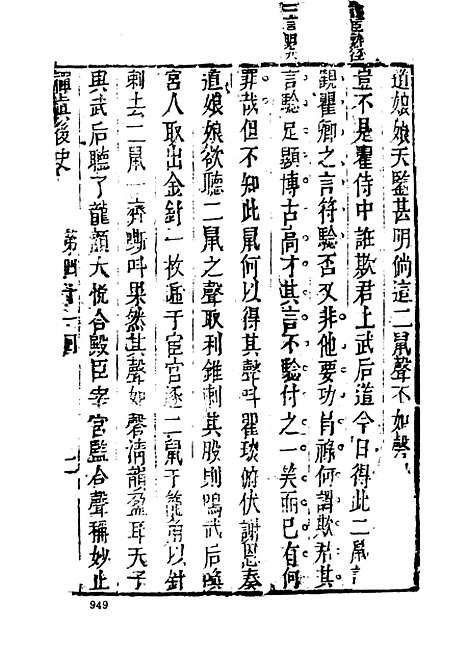 道娘娘天鑒甚明倘這二鼠聲不如磬
豈不是瞿侍中誑欺君上武后道今日得此二鼠言
親瞿卿之言符驗否又非他要功肖祿何謂欺君其
言驗足顯博古高才其言不驗付之一笑而已有何
罪哉但不知此鼠何以得其聲叫瞿琰俯伏謝恩奏
道娘娘欲聽二鼠之聲取利錐刺其股則鳴武后喚
宮人取出金針一枚遞于宦官逐二鼠于籠角以針
刺去二鼠一齊嘶叫果然其聲如磬清韻盈耳天子
與武后聽了龍顏大悅合殿臣宰宮監合聲稱妙止
禪真後史
第四十二回
949